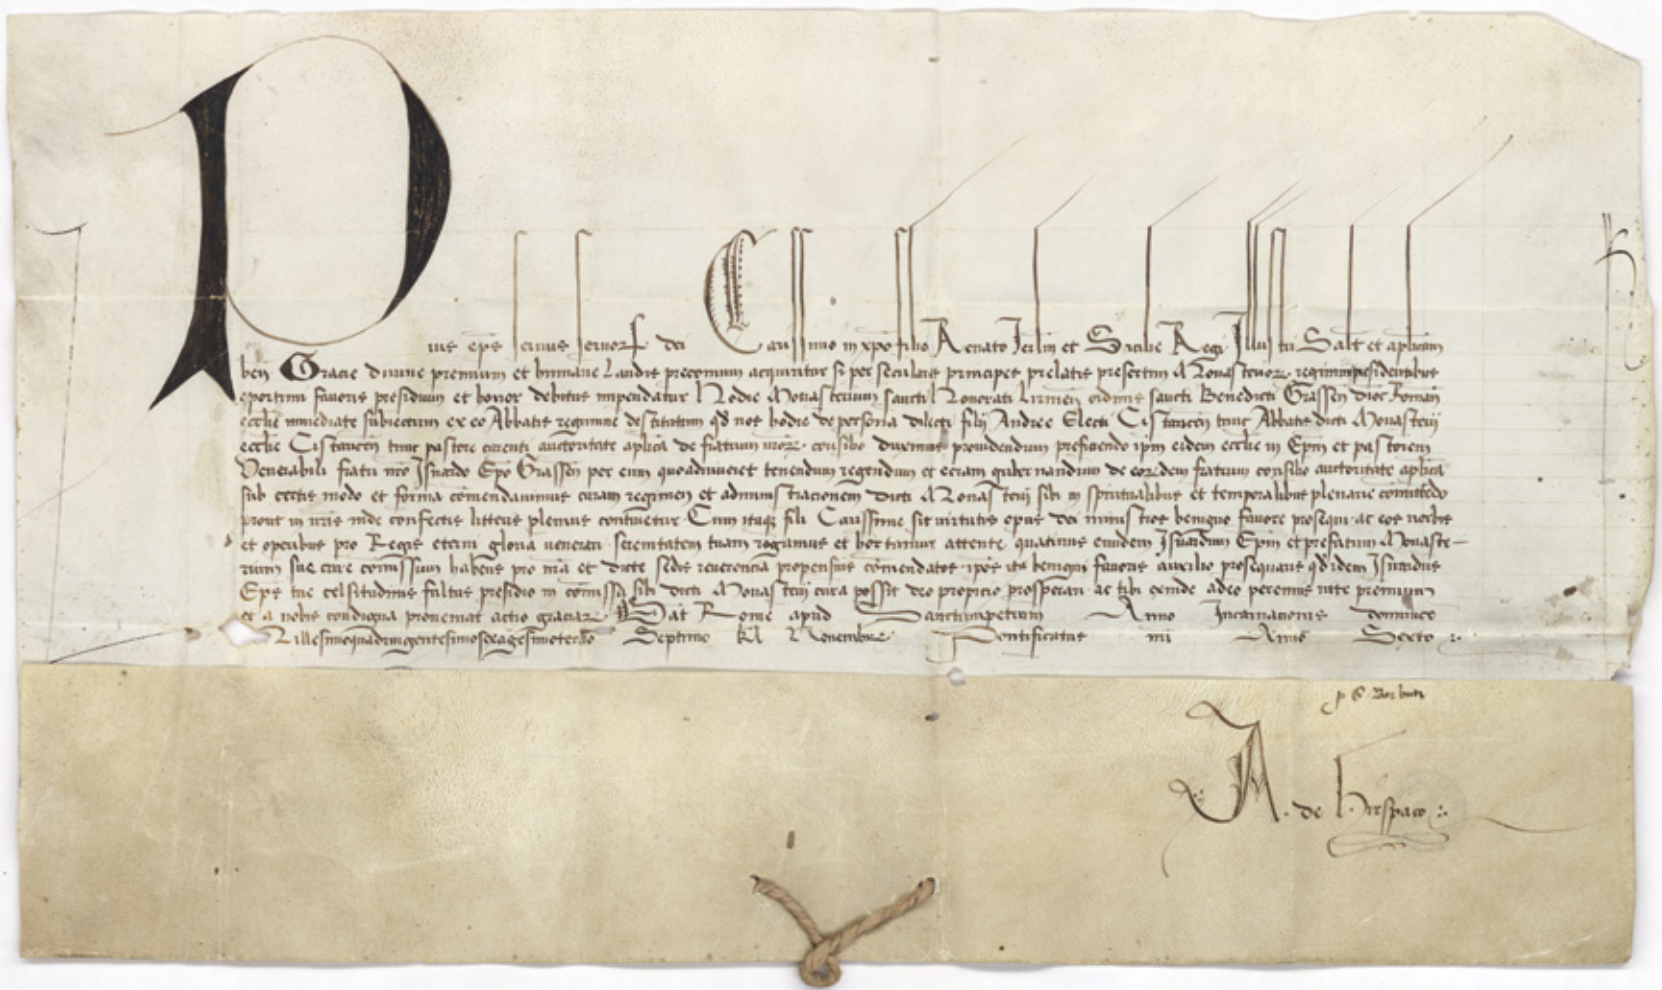 Pius eps servus servorꝝ dei Carissimo in xpo filio Renato Jerlm et Sicilie Regi Illustri Salt et aplicam
ben Gracie divine premium et humane laudis preconium acquiritur si per seculares principes prelatis presertim Monasteriorꝝ regimini presidentibus
oportuni favoris presidium et honor debitus impendatur Hodie Monasterium sancti Honorati Lirinen ordinis sancti Benedicti Grassen dioc Romane
ecclie inmediate subiectum ex eo Abbatis regimine destitutum qd nos hodie de persona dilecti filij Andree Electi Cistaricen tunc Abbatis dicti Monasterij
ecclie Cistaricen tunc pastore carenti auctoritate aplica de fratrum nrorꝝ consilio duximus providendum preficiendo ipm eidem ecclie in Epm et pastorem
Venerabili fratri nro Isnardo Epo Grassen per eum quoadviveret tenendum regendum et etiam gubernandum de eorꝝdem fratrum consilio auctoritate aplica
sub certis modo et forma comendavimus curam regimen et administracionem dicti Monasterij sibi in spiritualibus et temporalibus plenarie comittedo
prout in nris inde confectis litteris plenius continetur Cum itaqꝫ fili Carissime sit virtutis opus dei ministros benigno favore prosequi ac eos verbis
et operibus pro Regis eterni gloria venerari serenitatem tuam rogamus et hortamur attente quatinus eundem Isnardum Epm et prefatum Monaste-
rium sue cure comissum habens pro nra et dicte sedis reverencia propensius comendatos ipos sic benigni favoris auxilio prosequaris qd idem Isnardus
Eps tue celsitudinis fultus presidio in comissa sibi dicti Monasterij cura possit deo propicio prosperari ac tibi exinde adeo perennis vite premium
et a nobis condigna proveniat actio graciarꝝ Dat Rome apud Sanctumpetrum Anno Incarnationis dominice
Millesimoquadringentesimosexagesimotertio Septimo kl Novembris Pontificatus nri Anno Sexto
A. de Hirspaco